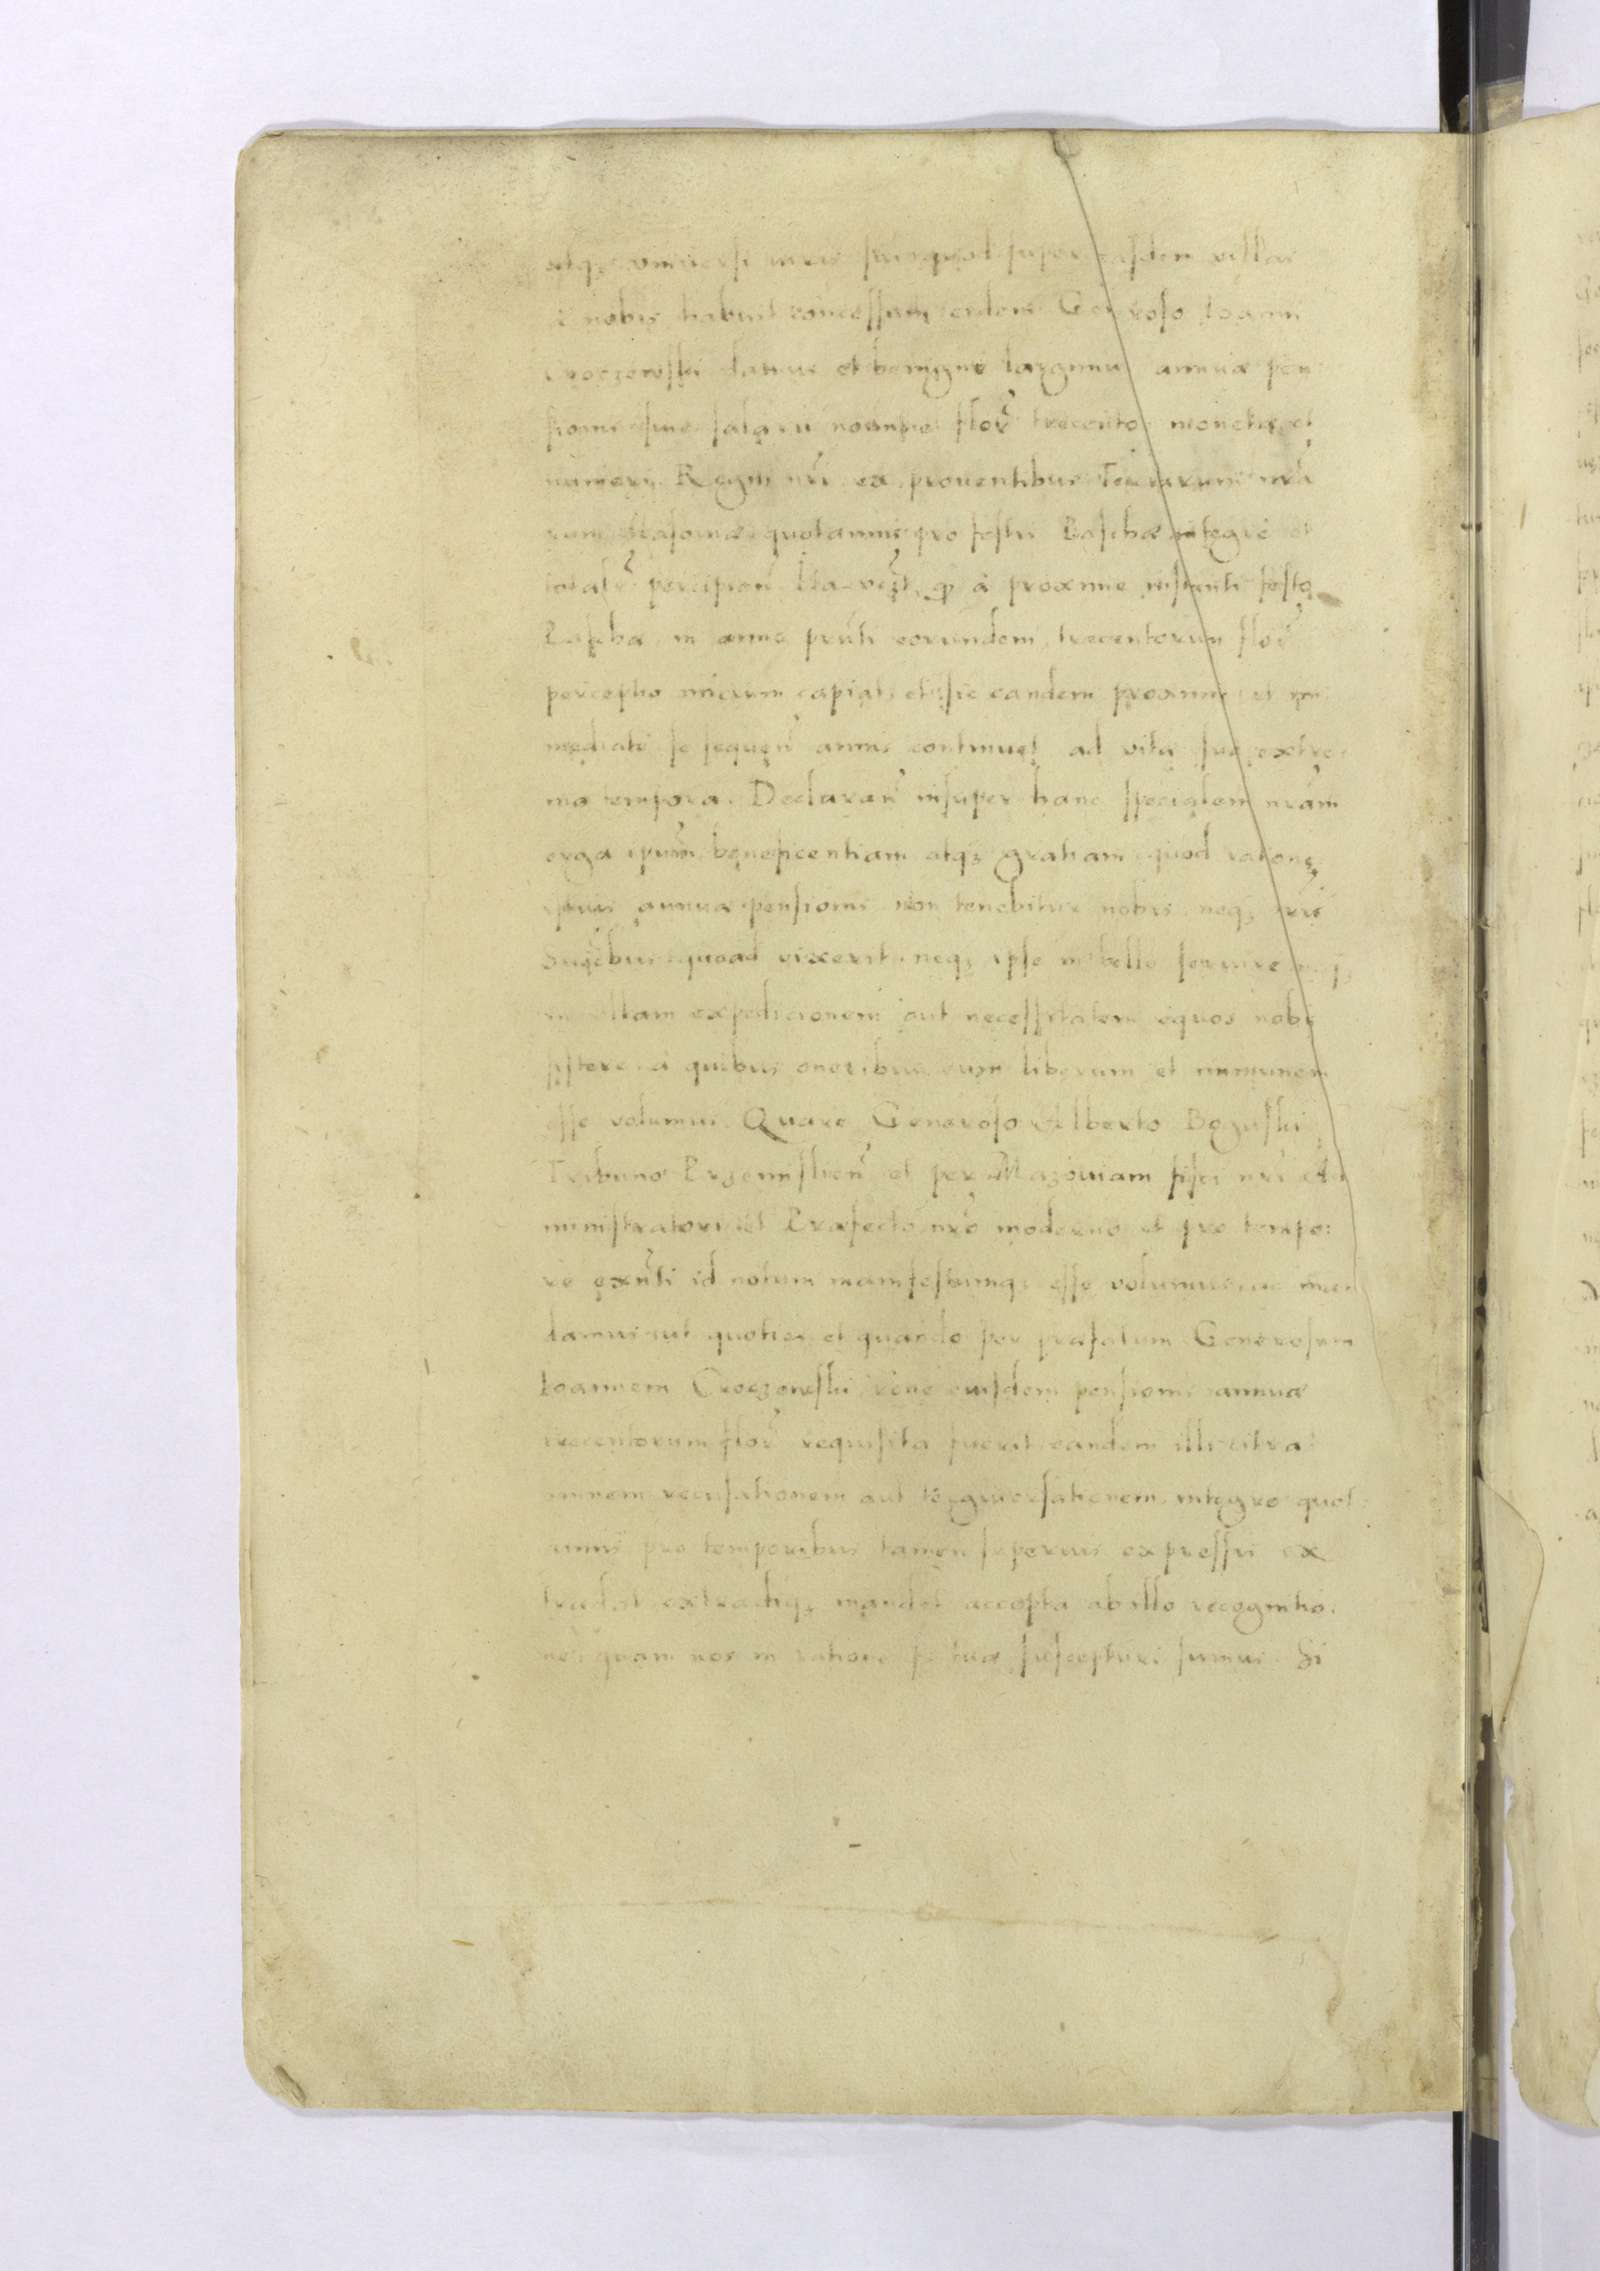 atq₃ vniuersi iuris sui quod super easdem villas
a nobis habuit concessum eidem Generoso Ioanni
Croczewski damus et benigne largimur annuæ pen
sionis siue salarij nomine flor̃ trecentos monetæ et
numeri Regni nr̃i ex prouentibus Terrarum nr̃a
rum Masouiæ quotannis pro festis Paschæ integre et
totalr̃ percipien̄ Ita vcz̃t, q̃ à proxime instanti festo
Paschæ in anno prn̄ti eorundem trecentorum flor̃
perceptio initium capiat, et sic eandem proximis et im
mediate se sequen̄ annis continuet ad vitæ suæ extre
ma tempora. Declaran̄ insuper hanc specialem nr̃am
erga ipsum beneficentiam atq₃ gratiam quod ratione
istius annuæ pensionis non tenebitur nobis neq₃ nr̃is
Succ̄bus quoad vixerit neq₃ ipse in bello seruire neq₃
in ullam expedicionem aut necessitatem equos nobis
sistere, à quibus oneribus eum liberum et immunem
esse volumus. Quare Generoso Alberto Boguski
Tribuno Przemislien̄ et per Mazouiam fisci nr̃i Ad
ministratori et Præfecto nr̃o moderno et pro tempo:
re exn̄ti id notum manifestumq₃ esse volumus, ac man
damus ut quoties et quando per præfatum Generosum
Ioannem Croczewski rõne eiusdem pensionis annuæ
trecentorum flor̃ requisita fuerit, eandem illi citra
omnem recusationem aut tergiuersationem integre quot
annis pro temporibus tamen superius expressis ex
tradat extradiq₃ mandet accepta ab illo recognitio:
ne, quam nos in ratione suæ suscepturi sumus. Si